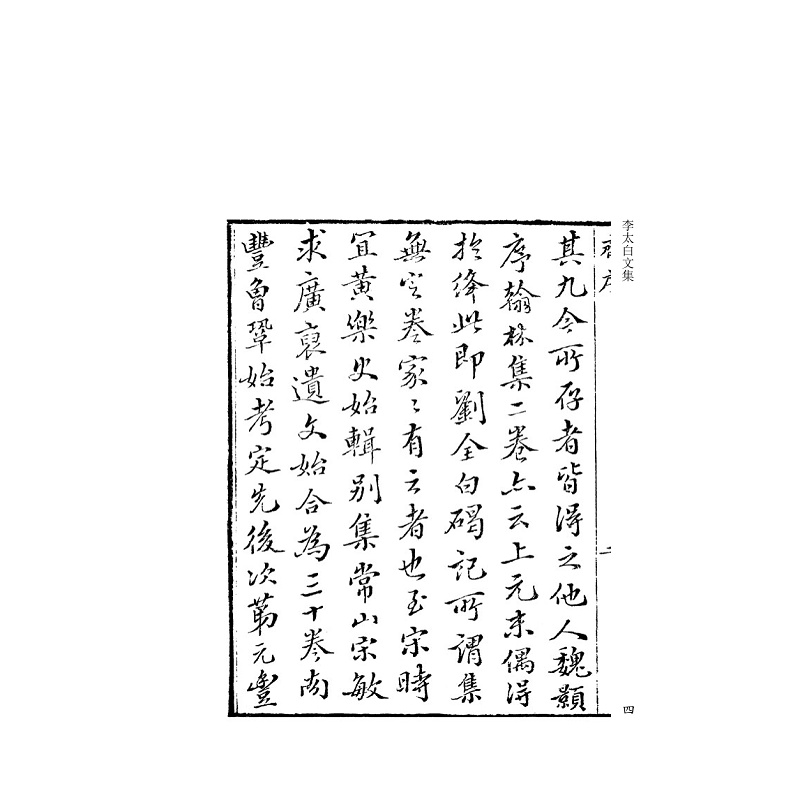 李太白文集
其九今所存者皆得之他人魏顥
序翰林集二卷亦云上元末偶得
於絳此即劉全白碣記所謂集
無定卷家〻有之者也至宋時
宜黃樂史始輯別集常山宋敏
求廣裒遺文始合為三十卷南
豐曾鞏始考定先後次第元豐
四